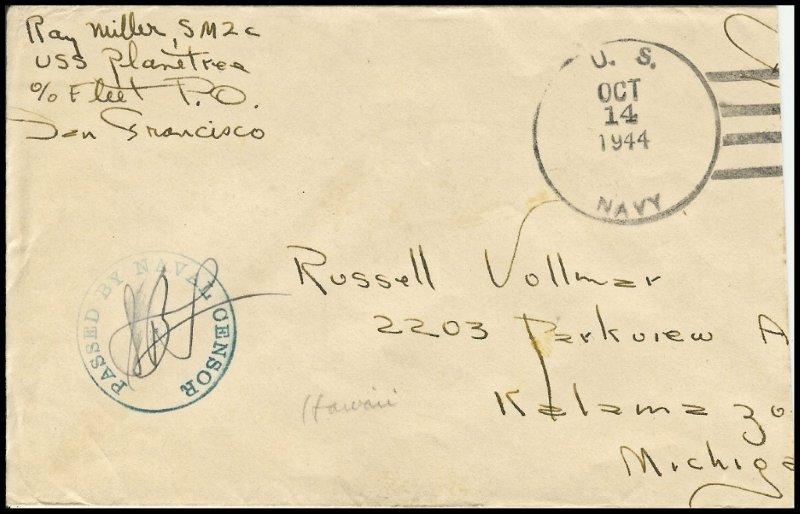 Ray Miller, SM2c
USS Planetree
c/o Fleet P.O.
San Francisco
U. S.
OCT
14
1944
NAVY
PASSED BY NAVAL CENSOR
Russell Vollmar
2203 Parkview A
Kalamazo
Michiga
Hawaii